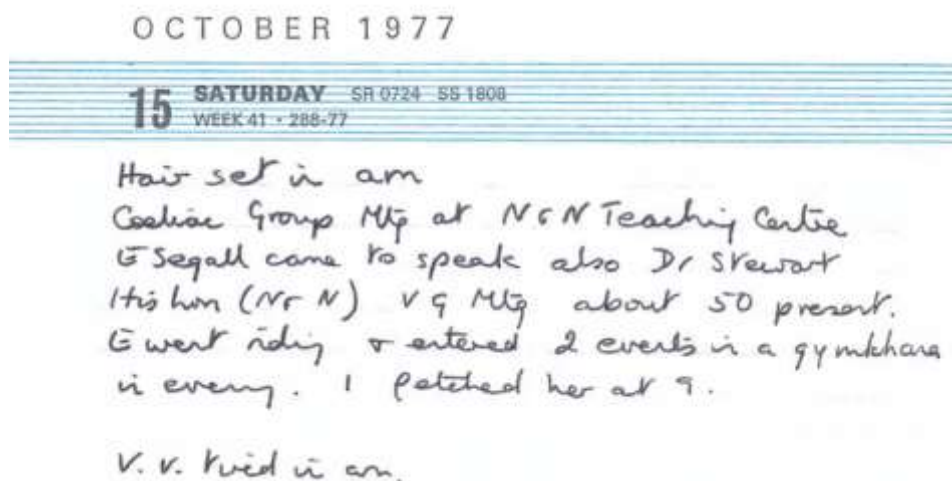 OCTOBER 1977
15 SATURDAY SR 0724 SS 1808
WEEK 41 · 288-77
Hair set in am
Coeliac Group Mtg at N & N Teaching Centre
E Segall came to speak also Dr Stewart
(N & N) V G Mtg about 50 present.
E went riding & entered 2 events in a gymkhana
in evening. I fetched her at 9.
V. V. tired in am.